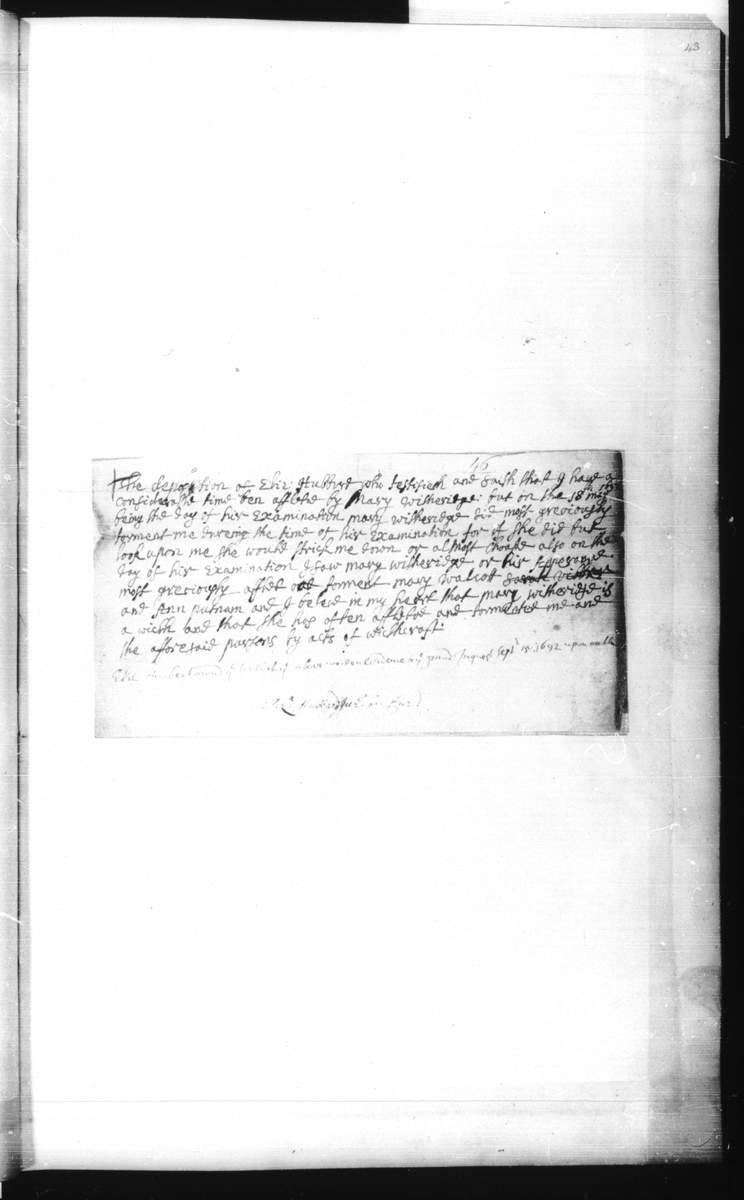 43
46
The deposition of Eliz: Hubbrd who testifieth and saith that I haue a
considerable time ben afflectd by Mary witheridge: but on the 18th may
being the day of hir Examination mary witheridge did most greviously
torment me dureing the time of hir Examination for if she did but
look upon me she would strick me down or almost choake also on the
day of hir Examination I saw mary witheridge or hir Apperance
most greviously afflect and torment mary walcott sarah vibber
and Ann putnam and I beleue in my heart that mary witheridge is
a wicth and that she has often afflectd and tormented me and
the afforesaid parsons by acts of wicthcraft
Eliz Hubbard ownd ye truth of ye above written evidence to ye grand Inquest Sept 15: 1692 upon oath
Jurat in Curia